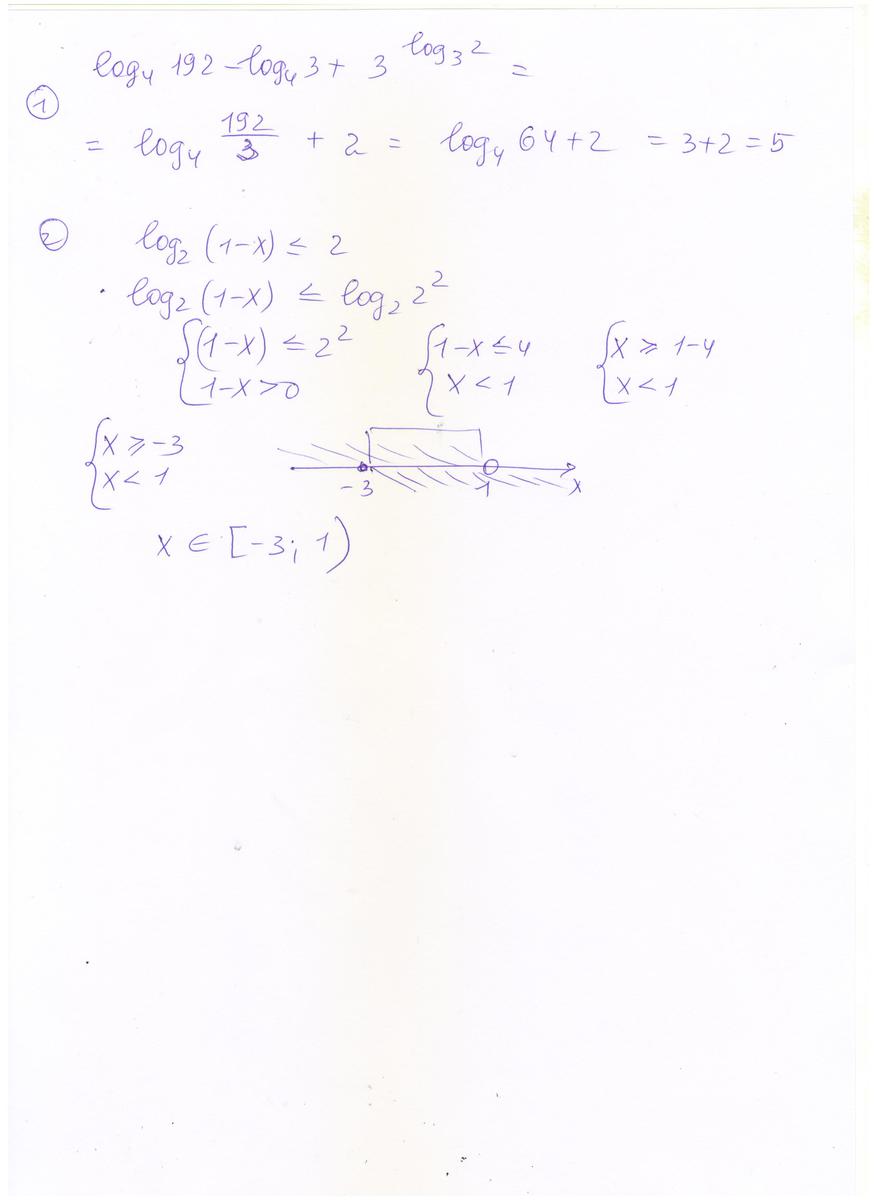 log₄ 192 - log₄ 3 + 3^(log₃ 2) =
① = log₄ 192/3 + 2 = log₄ 64 + 2 = 3+2 = 5
② log₂ (1-x) ≤ 2
log₂ (1-x) ≤ log₂ 2²
{(1-x) ≤ 2² {1-x ≤ 4 {x ⩾ 1-4
1-x > 0 x < 1 x < 1
{x ⩾ -3
x < 1
-3 1 x
x ∈ [-3; 1)